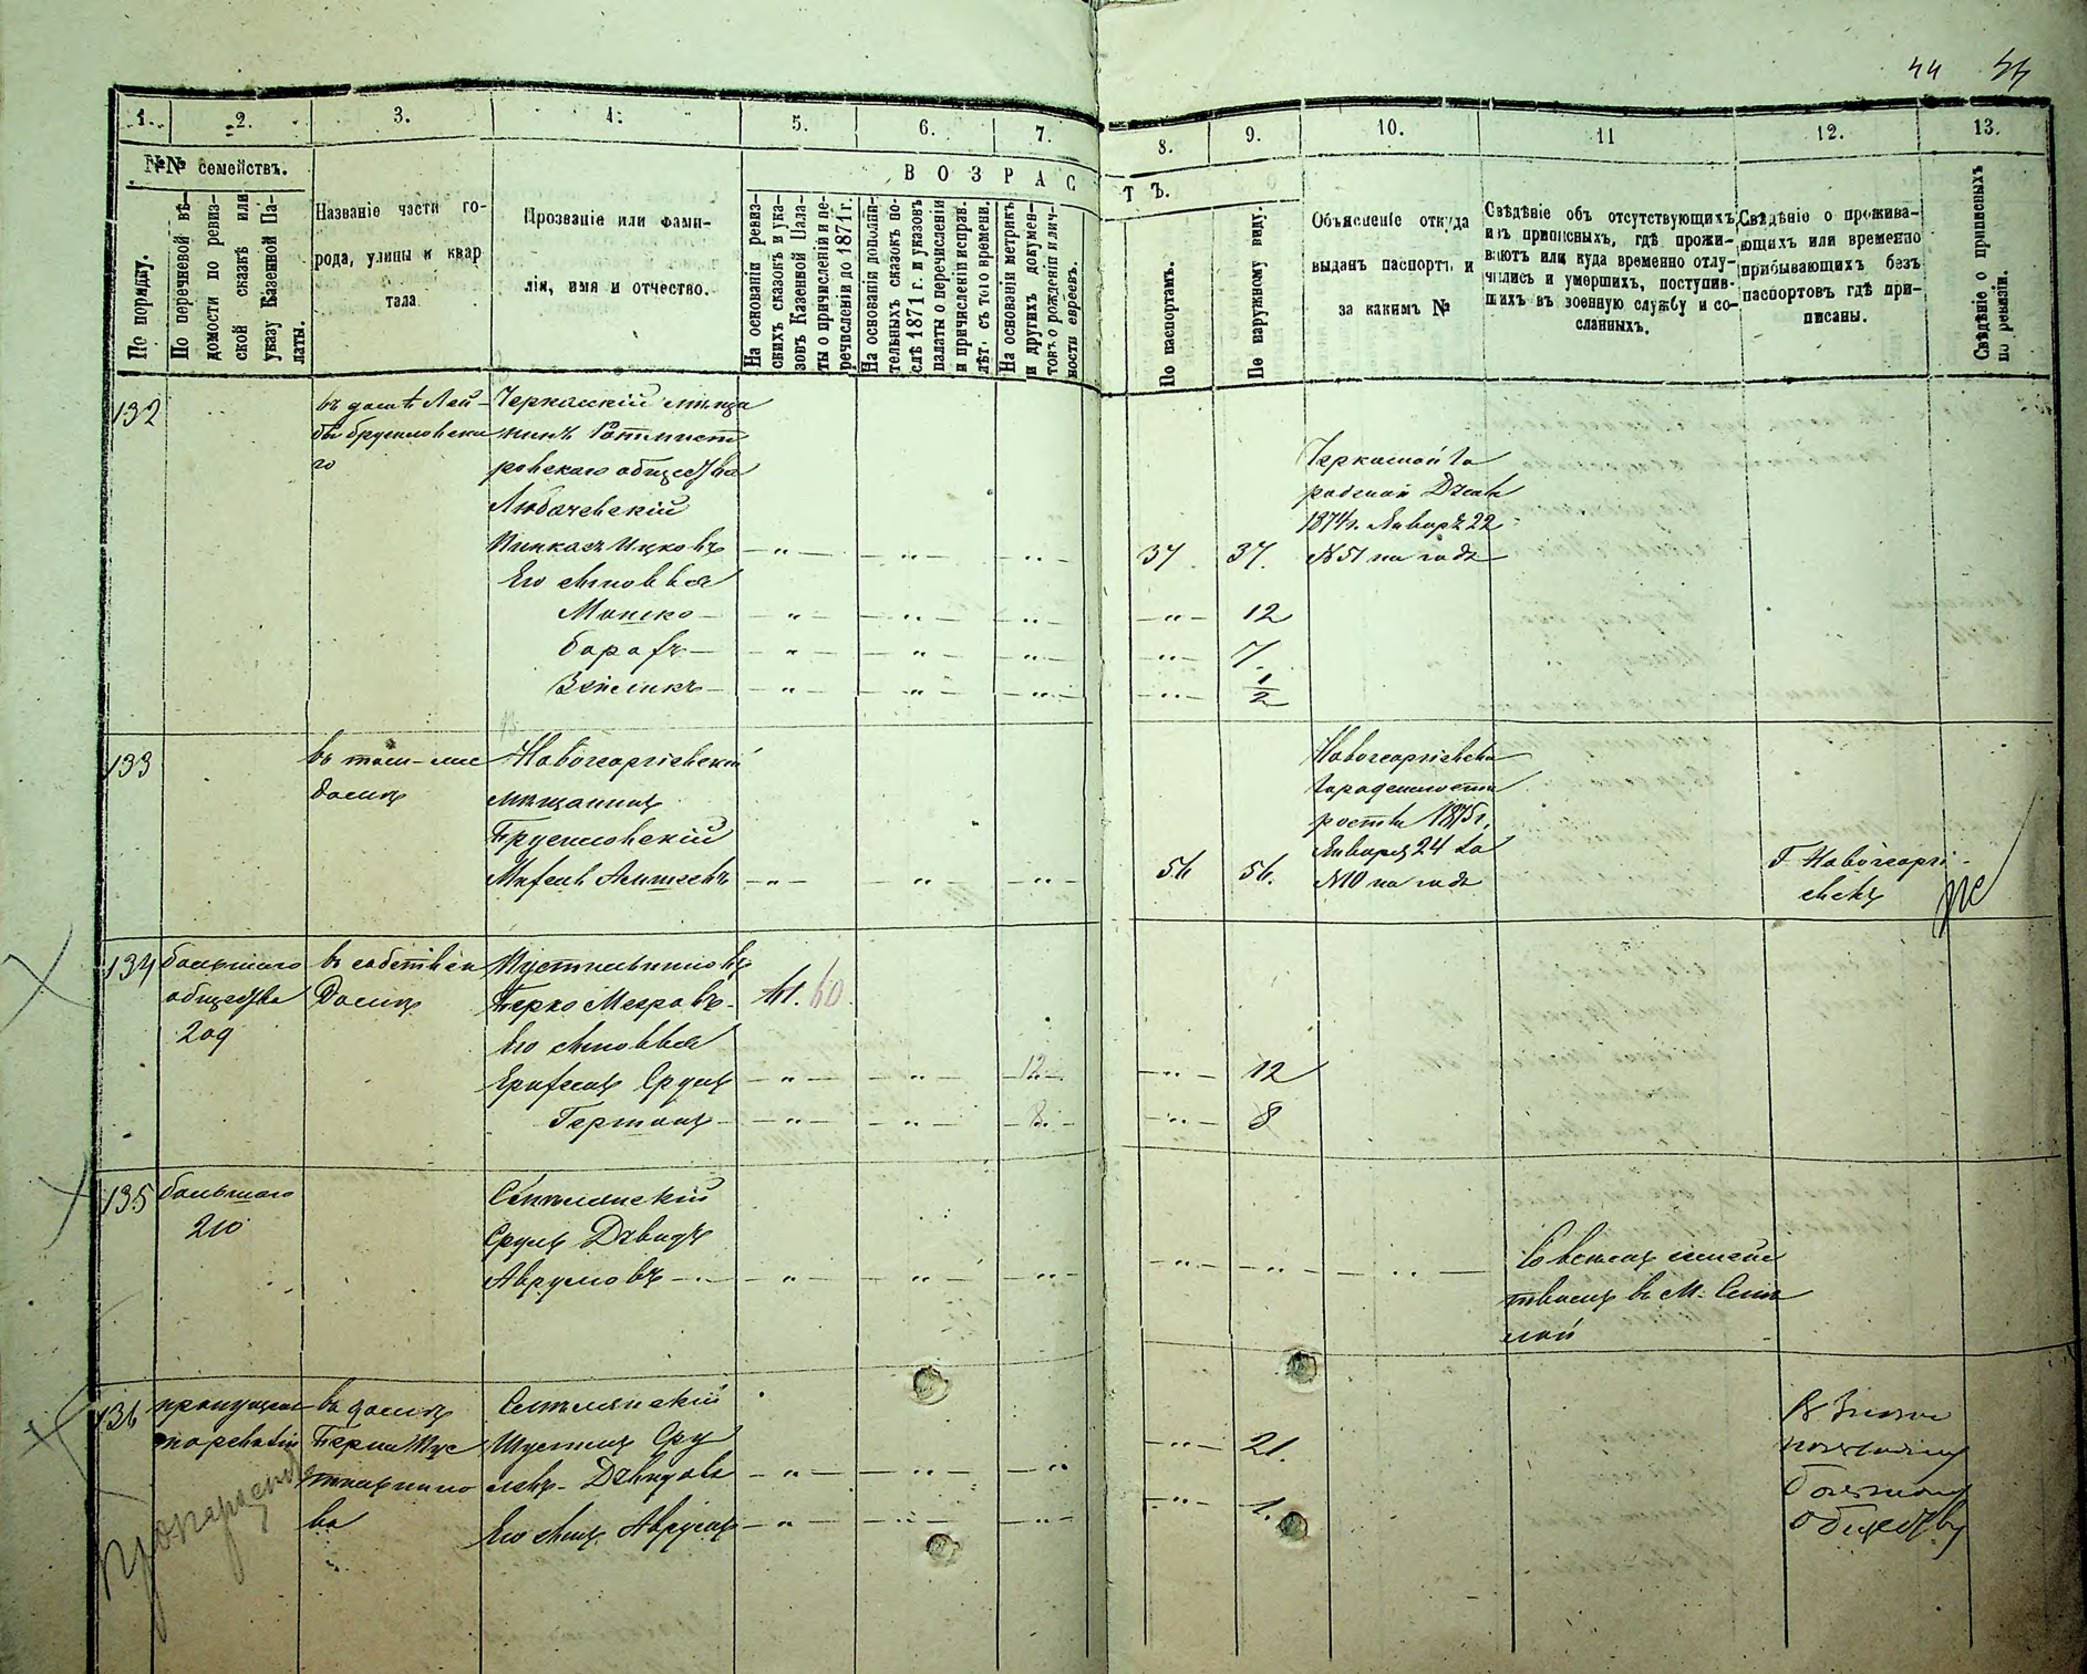 44 44
1. 2. 3. 4. 5. 6. 7. 8. 9. 10. 11 12. 13.
№№ семействъ.
По порядку.
По перечневой вѣ-
домости по ревиз-
ской сказкѣ или
указу Казенной Па-
латы.
Названіе части го-
рода, улицы и квар
тала
Прозваніе или фами-
лія, имя и отчество.
ВОЗРАСТЪ.
На основаніи ревиз-
скихъ сказокъ и ука-
зовъ Казенной Пала-
ты о причисленіи и пе-
речисленіи до 1871 г.
На основаніи дополни-
тельныхъ сказокъ по-
слѣ 1871 г. и указовъ
палаты о перечисленіи
и причисленіи исправ.
лѣт. съ того времени.
На основаніи метрикъ
и другихъ докумен-
товъ о рожденіи и лич-
ности евреевъ.
По паспортамъ.
По наружному виду.
Объясненіе откуда
выданъ паспортъ и
за какимъ №
Свѣдѣніе объ отсутствующихъ
изъ приписныхъ, гдѣ прожи-
ваютъ или куда временно отлу-
чились и умершихъ, поступив-
шихъ въ военную службу и со-
сланныхъ.
Свѣдѣніе о прожива-
ющихъ или временно
прибывающихъ безъ
паспортовъ гдѣ при-
писаны.
Свѣдѣніе о приписныхъ
по ревизіи.
132
въ домѣ Лей-
бы Брусиловска
го
Черкасскій мѣща
нинъ Ротмист
ровскаго общества
Любачевскій
Пинкасъ Ицковъ
37 37.
Его сыновья
Мошко 12
Борох 7.
Зейликъ 1/2
Черкасской Го
родской Думы
1874 г. Января 22
№ 51 на годъ
133
въ томъ-же
домѣ
Новогеоргіевскій
мѣщанинъ
Брусиловскій
56 56.
Новогеоргіевска
Городскаго ста
росты 1875 г.
Января 24 за
№10 на годъ
Г. Новогеоргі-
евскъ
134
большаго
общества
209
въ собствен
домѣ
Берко Мееровъ 61. 60
Его сыновья
Ерахмилъ Сруль 12 12
Гершонъ 8 8
135
большаго
210
Смѣлянскій
Сруль Дувидъ
Аврумовъ
Со всѣмъ семей
ствомъ въ М. Смѣ
лой
136
въ домѣ
Смѣлянскій
Сру
левъ-Дувидовъ 21.
Его сынъ Аврумъ 1.
большому
обществу